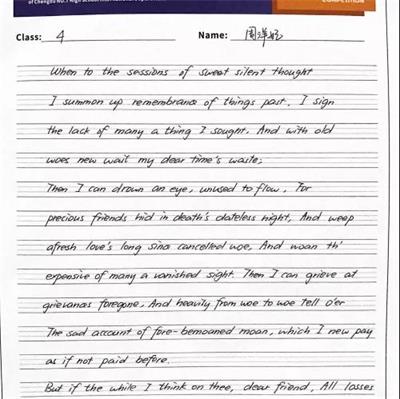 of Chengdu NO.7 High School International
COMPETITION
Class: 4 Name: 周洋
When to the sessions of sweat silent thought
I summon up remembrance of things past, I sign
the lack of many a thing I sought, And with old
woes new wail my dear time's waste;
Then I can drown an eye, unused to flow, For
precious friends hid in death's dateless night, And weep
afresh love's long since cancelled woe, And woan th'
expensive of many a vanished sight. Then I can grieve at
grievances foregone, And heavily from woe to woe tell o'er
The sad account of fore-bemoaned moan, which I new pay
as if not paid before.
But if the while I think on thee, dear friend, All losses